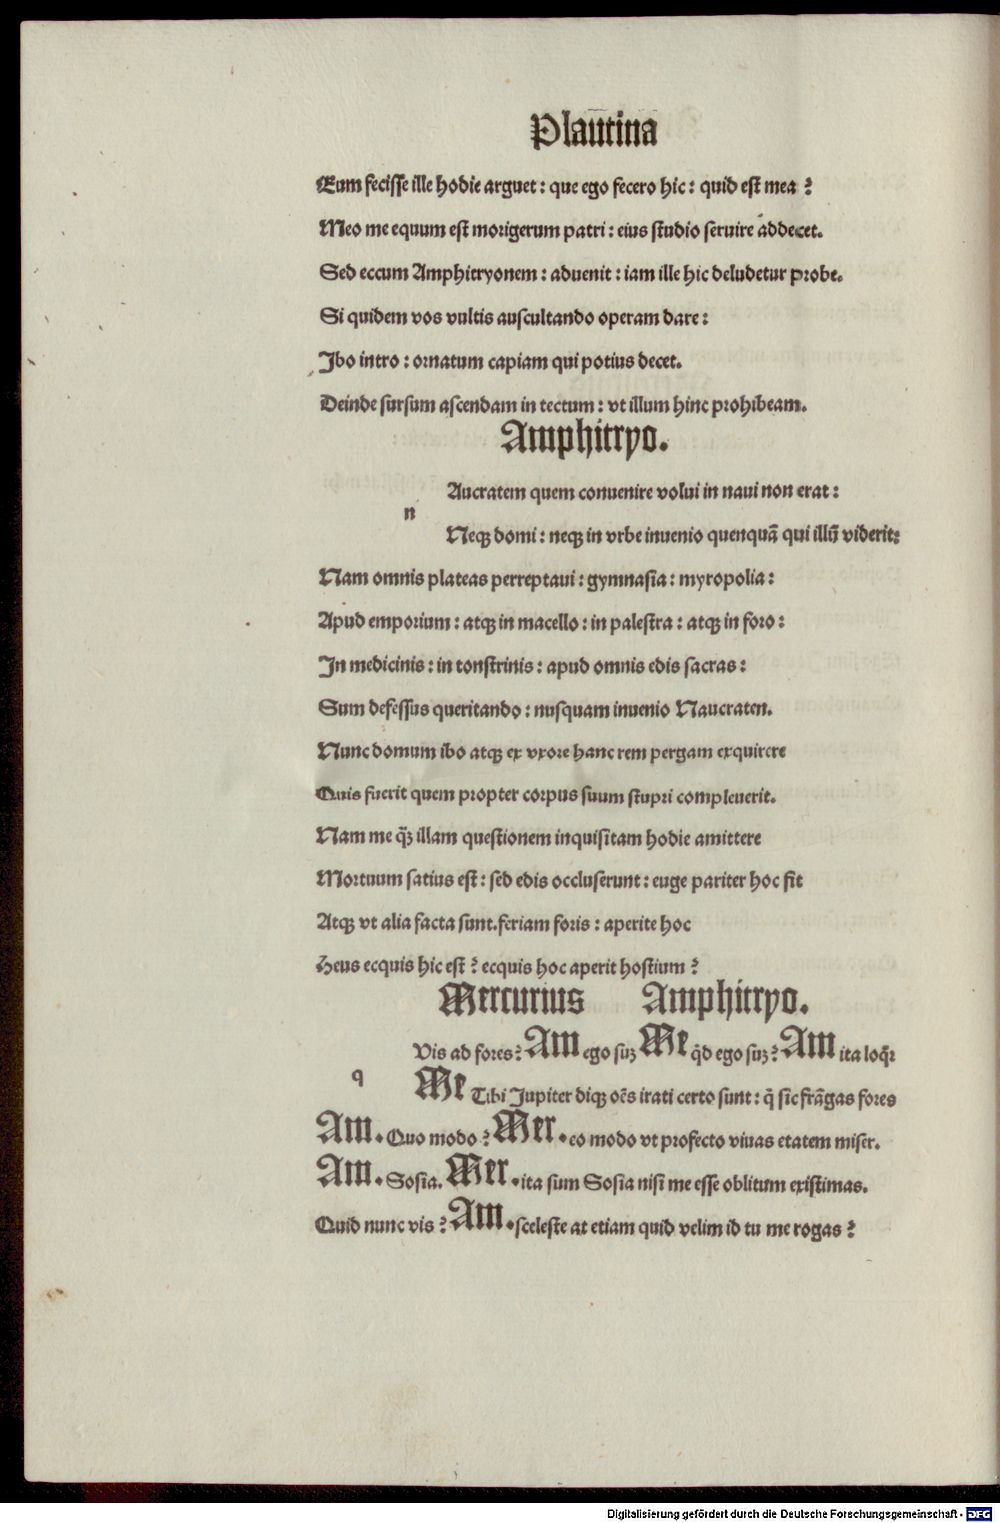 Plautina
Eum fecisse ille hodie arguet : que ego fecero hic : quid est mea ?
Meo me equum est morigerum patri : eius studio seruire addecet.
Sed eccum Amphitryonem : aduenit : iam ille hic deludetur probe.
Si quidem vos vultis auscultando operam dare :
Ibo intro : ornatum capiam qui potius decet.
Deinde sursum ascendam in tectum : vt illum hinc prohibeam.
Amphitryo.
Aucratem quem conuenire volui in naui non erat :
n
Neqꝫ domi : neqꝫ in vrbe inuenio quenquã qui illũ viderit:
Nam omnis plateas perreptaui : gymnasia : myropolia :
Apud emporium : atqꝫ in macello : in palestra : atqꝫ in foro :
In medicinis : in tonstrinis : apud omnis edis sacras :
Sum defessus queritando : nusquam inuenio Naucraten.
Nunc domum ibo atqꝫ ex vxore hanc rem pergam exquirere
Quis fuerit quem propter corpus suum stupri compleuerit.
Nam me q̃ꝫ illam questionem inquisitam hodie amittere
Mortuum satius est : sed edis occluserunt : euge pariter hoc fit
Atqꝫ vt alia facta sunt. feriam foris : aperite hoc
Heus ecquis hic est ? ecquis hoc aperit hostium ?
Mercurius Amphitryo.
Vis ad fores ? Am ego suꝫ Me q̃d ego suꝫ ? Am ita loq̃r
q
Me Tibi Jupiter diqꝫ oẽs irati certo sunt : q̃ sic frãgas fores
Am. Quo modo ? Mer. eo modo vt profecto viuas etatem miser.
Am. Sosia. Mer. ita sum Sosia nisi me esse oblitum existimas.
Quid nunc vis ? Am. sceleste at etiam quid velim id tu me rogas ?
Digitalisierung gefördert durch die Deutsche Forschungsgemeinschaft - DFG